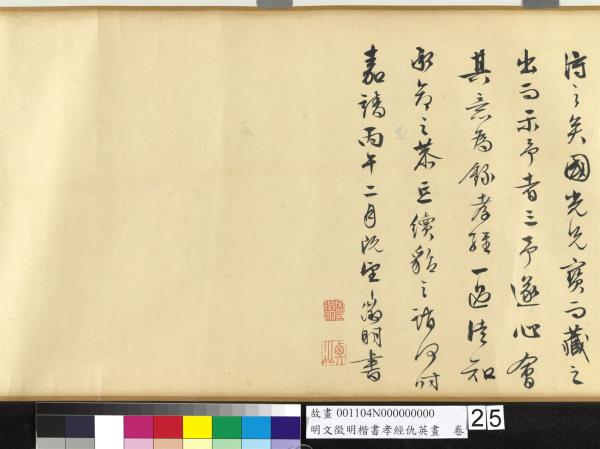 得之矣國光兄寶而藏之
出而示予者三予遂心會
其意為錄孝經一過徒知
承命之恭續貂之誚時
嘉靖丙午二月既望徵明書
故畫 001104N000000000
明文徵明楷書孝經仇英畫 卷
25